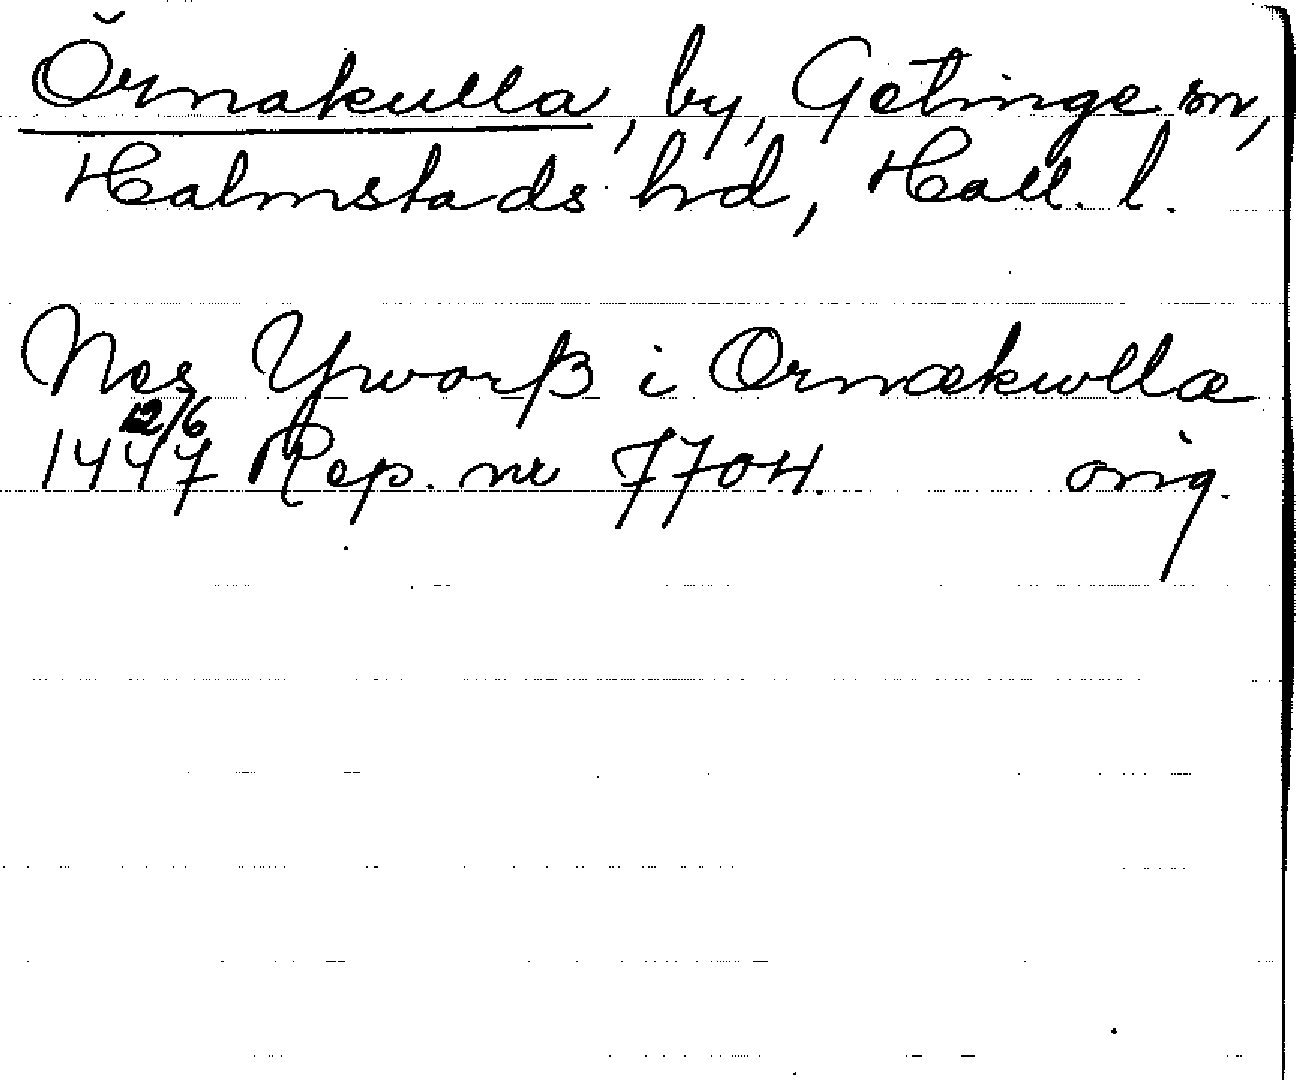 Örnakulla, by, Getinge sn,
Halmstads hrd, Hall. l.
Nes Ywarß i Ornækwllæ
12/6
1447 Rep. nr 7704. orig.